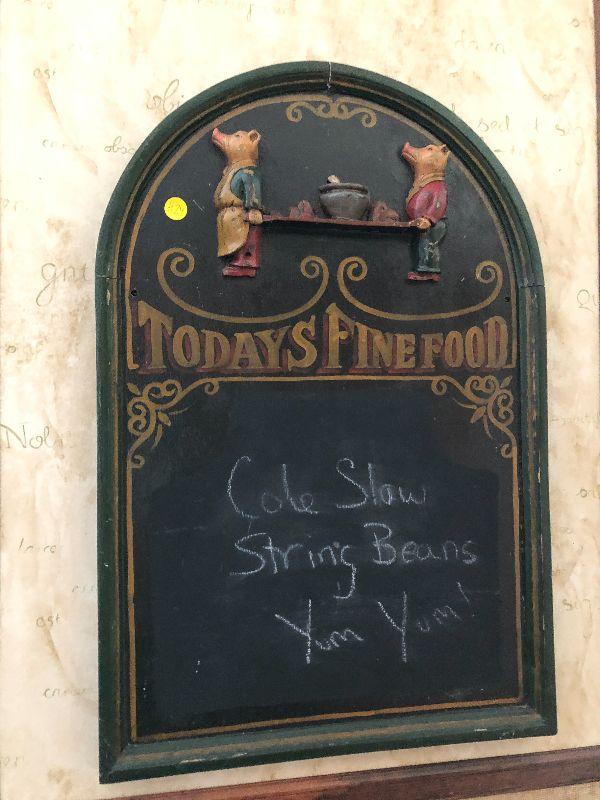 TODAYS FINE FOOD
Cole Slow
String Beans
Yum Yum!